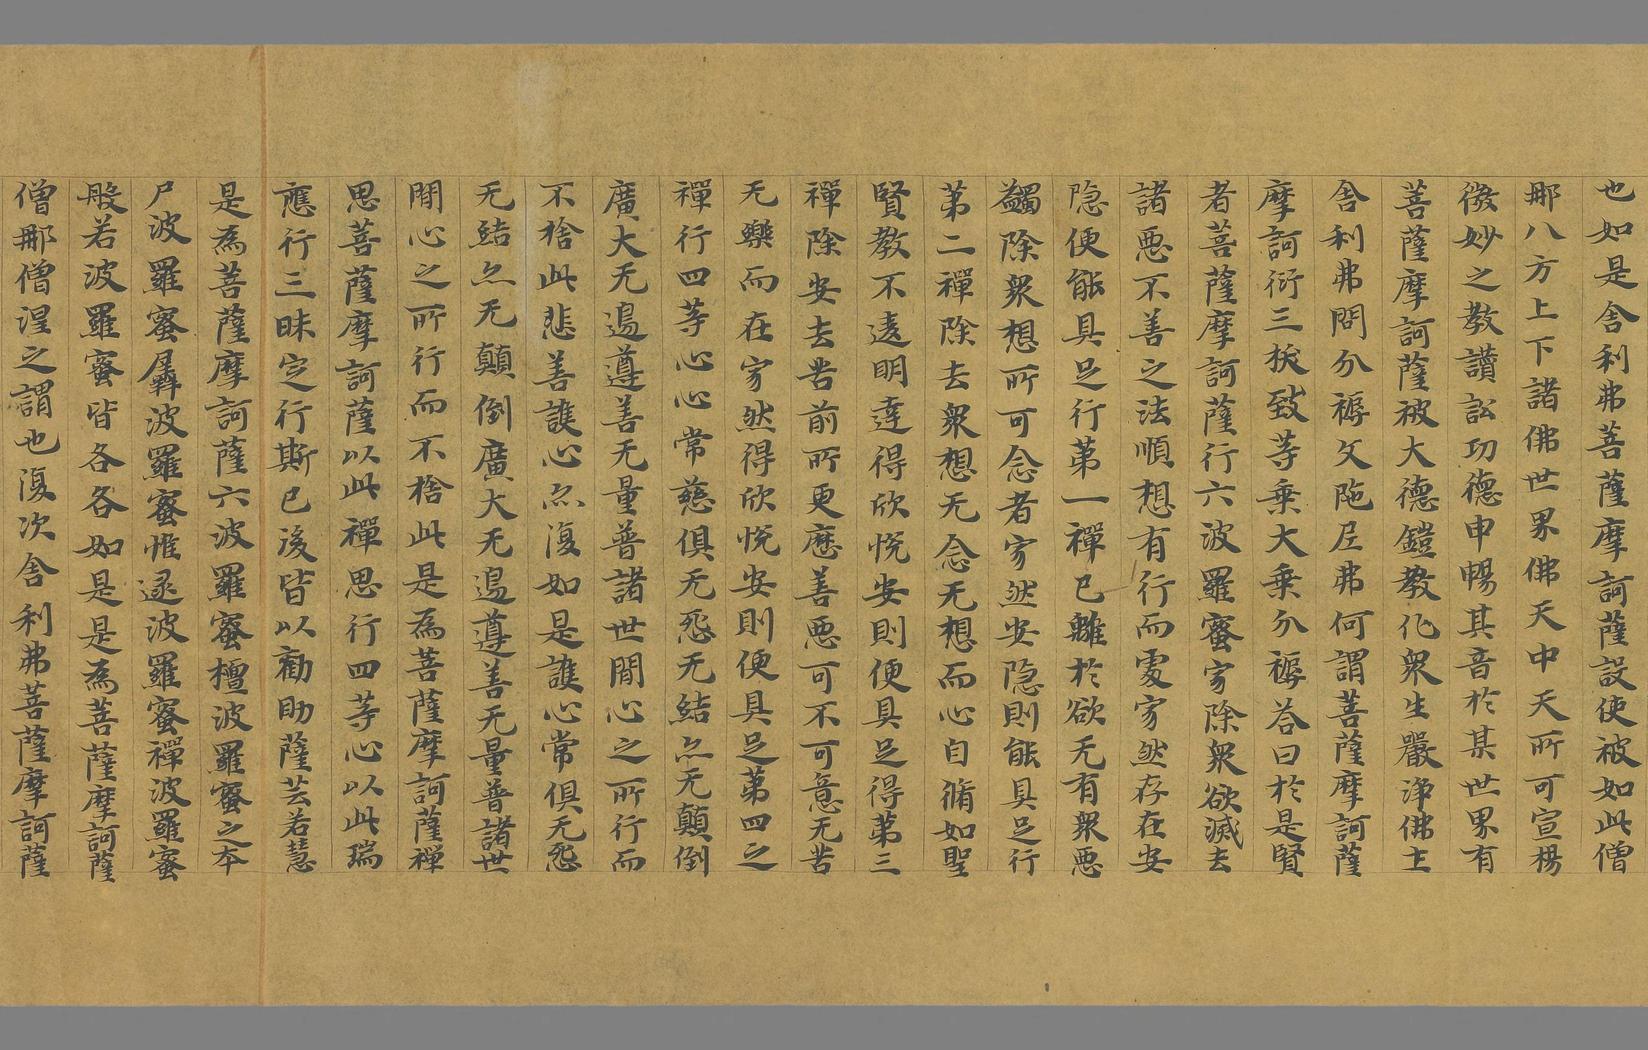 也如是舍利弗菩薩摩訶薩設使被如此僧
那八方上下諸佛世界佛天中天所可宣楊
微妙之教讚訟功德申暢其音於某世界有
菩薩摩訶薩被大德鎧教化衆生嚴淨佛土
舍利弗問分耨文陁尼弗何謂菩薩摩訶薩
摩訶衍三拔致等乗大乗分耨荅曰於是賢
者菩薩摩訶薩行六波羅蜜家除衆欲滅去
諸悪不善之法順想有行而處家然存在安
隐便能具足行苐一禪已離於欲无有衆悪
蠲除衆想所可念者家然安隐則能具足行
苐二禪除去衆想无念无想而心自脩如聖
賢教不遠明達得欣悅安則便具足得苐三
禪除安去苦前所更應善悪可不可意无苦
无樂而在家然得欣悅安則便具足苐四之
禪行四等心心常慈俱无怨无結亦无顛倒
廣大无邉遵善无量普諸世間心之所行而
不捨此悲善護心亦復如是護心常俱无怨
无結亦无顛倒廣大无邉遵善无量普諸世
間心之所行而不捨此是為菩薩摩訶薩禪
思菩薩摩訶薩以此禪思行四等心以此瑞
應行三昧定行斯已後皆以勸助薩芸若慧
是為菩薩摩訶薩六波羅蜜檀波羅蜜之本
尸波羅蜜羼波羅蜜惟逮波羅蜜禪波羅蜜
般若波羅蜜皆各各如是是為菩薩摩訶薩
僧那僧涅之謂也復次舍利弗菩薩摩訶薩